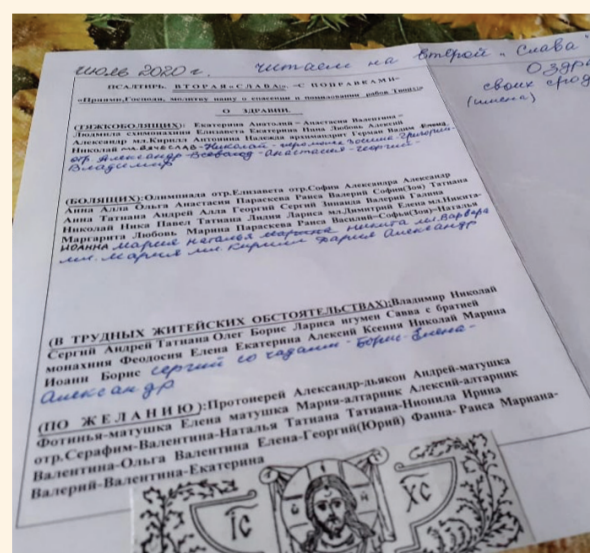 июль 2020 г. читаем на второй „Слава"
О здра
своих срод
(имена)
ПСАЛТИРЬ. ВТОРАЯ «СЛАВА». "С ПОПРАВКАМИ"
«Приими, Господи, молитву нашу о спасении и помиловании рабов Твоих:»
О ЗДРАВИИ.
(ТЯЖКОБОЛЯЩИХ): Екатерина Анатолий - Анастасия Валентина -
Людмила схимонахиня Елизавета Екатерина Нина Любовь Алексий
Александр мл.Кирилл Антонина Надежда архимандрит Герман Вадим Елена
Николай мл.ВЯЧЕСЛАВ - Николай - Григорий -
отр. Александр - Всеволод - Анастасия - Георгий -
Владимир
(БОЛЯЩИХ): Олимпиада отр.Елизавета отр.София Александра Александр
Анна Алла Ольга Анастасия Параскева Раиса Валерий София(Зоя) Татиана
Анна Татиана Андрей Алла Георгий Сергий Зинаида Валерий Галина
Николай Ника Павел Татиана Лидия Лариса мл.Димитрий Елена мл.Никита-
Маргарита Любовь Марина Параскева Раиса Василий-София(Зоя)-Наталья
ИОАННА Мария Наталья Марина Никита мл. Варвара
мл. Мария мл. Кирилл Дария Александр
(В ТРУДНЫХ ЖИТЕЙСКИХ ОБСТОЯТЕЛЬСТВАХ): Владимир Николай
Сергий Андрей Татиана Олег Борис Лариса игумен Савва с братией
монахиня Феодосия Елена Екатерина Алексий Ксения Николай Марина
Иоанн Борис Сергий со чадами - Борис - Елена -
Александр
(ПО ЖЕЛАНИЮ): Протоиерей Александр-дьякон Андрей-матушка
Фотинья-матушка Елена матушка Мария-алтарник Алексий-алтарник
отр.Серафим-Валентина-Наталья Татиана Татиана-Нионила Ирина
Валентина-Ольга Валентина Елена-Георгий(Юрий) Фаина- Раиса Мариана-
Валерий-Валентина-Екатерина
IС ХС